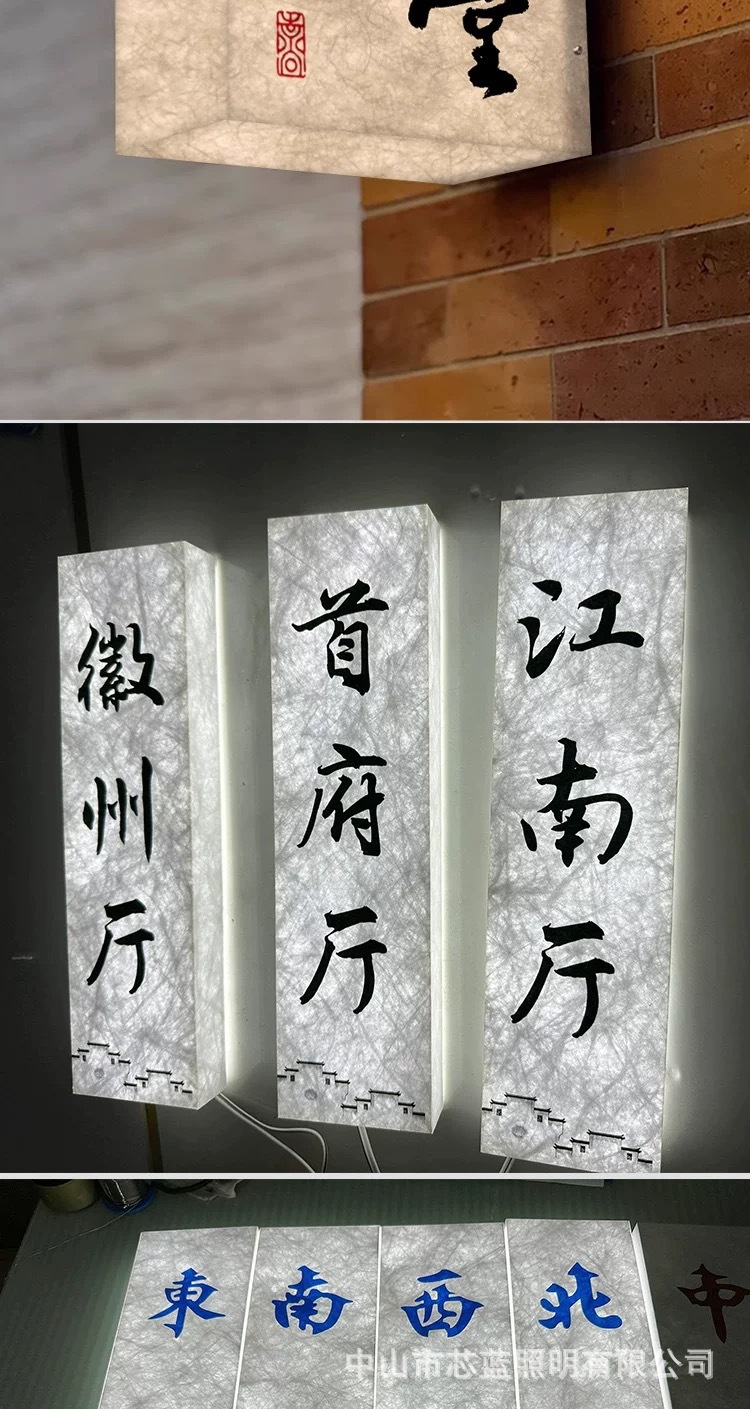 堂
徽州厅
首府厅
江南厅
東
南
西
北
中
中山市芯蓝照明有限公司